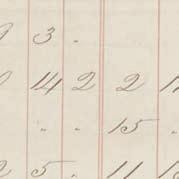 3 .
14 2 2
" " 15 .
5 . 11